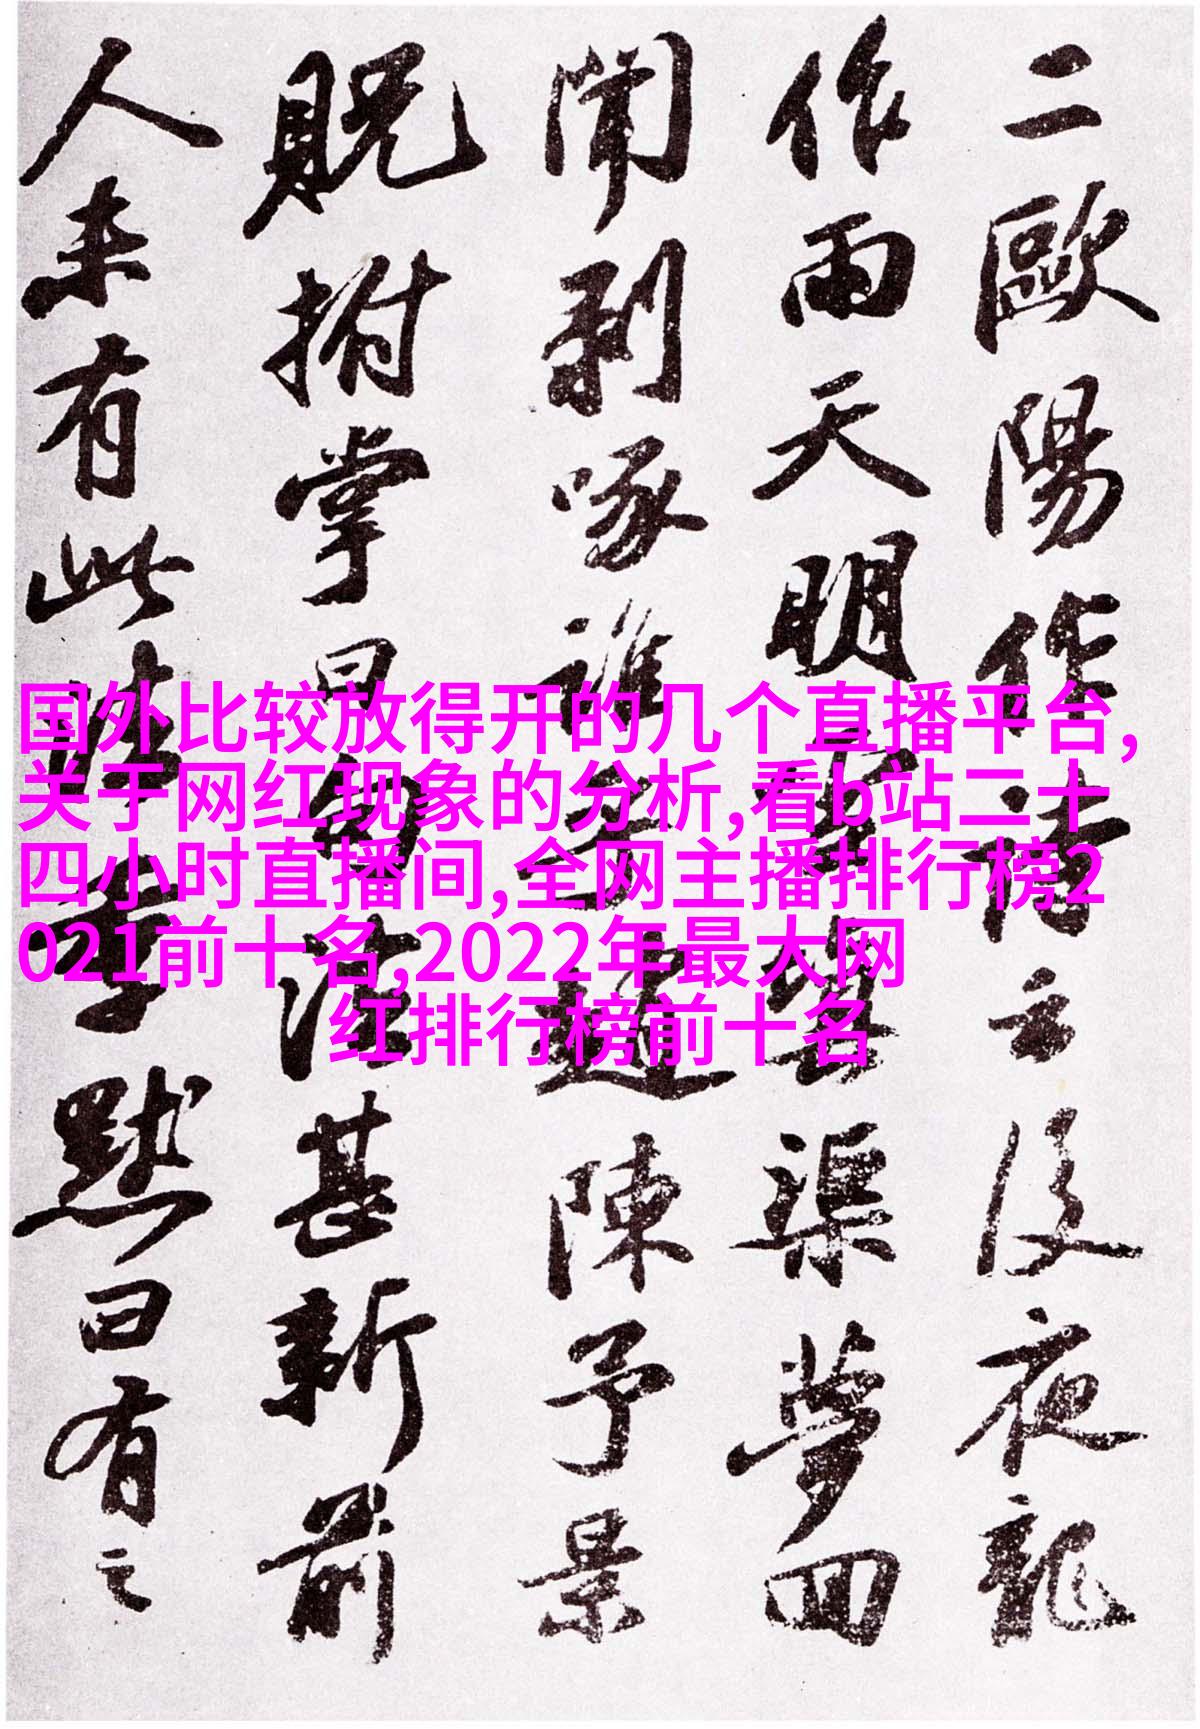 二歐陽作詩云後夜龍
作雨天明雪渠夢回
聞剥啄誰趙陳予景
貺拊掌曰句法甚新前
人未有此法季默曰有之
国外比较放得开的几个直播平台,
关于网红现象的分析,看b站二十
四小时直播间,全网主播排行榜2
021前十名,2022年最大网
红排行榜前十名